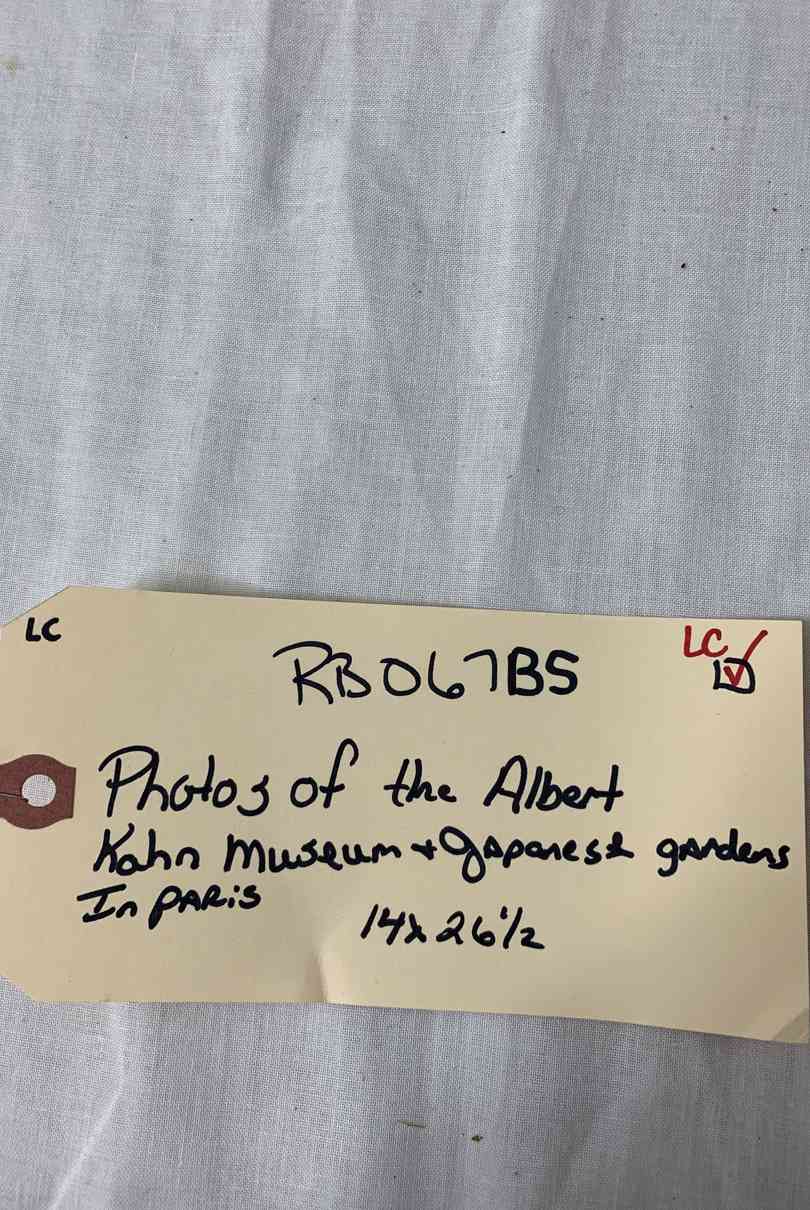 LC
LC
RB067BS
Photos of the Albert
Kahn Museum + Japanese gardens
In PARis
14x26 1/2